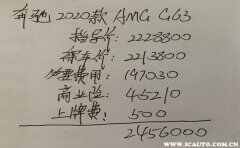 奔驰 2020款 AMG G63
指导价: 2228800
裸车价: 2213800
必要费用: 197030
商业险: 45210
上牌费: 500
2456000
www.icauto.com.cn